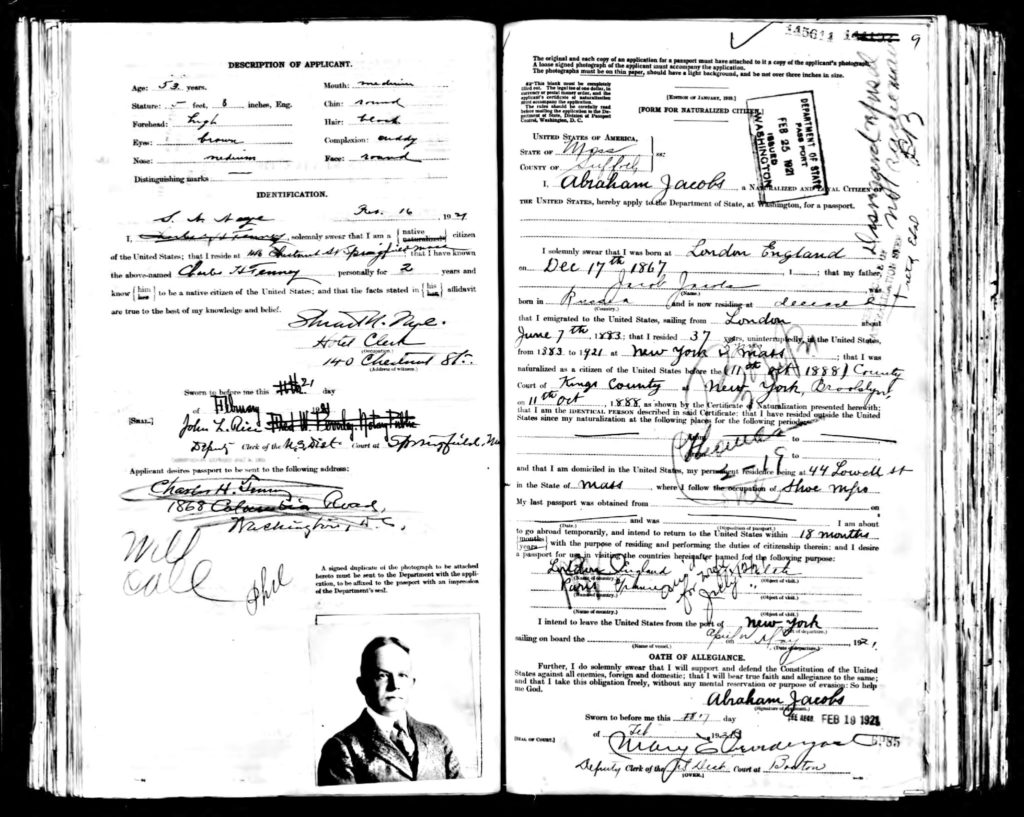 DESCRIPTION OF APPLICANT.
Age: 53 years.
Mouth: medium
Stature: 5 feet, 8 inches, Eng.
Chin: round
Forehead: high
Hair: black
Eyes: brown
Complexion: ruddy
Nose: medium
Face: round
Distinguishing marks —
IDENTIFICATION.
Feb. 16, 1921
I, S. N. Naye, solemnly swear that I am a {native naturalized} citizen
of the United States; that I reside at Chestnut St Springfield Mass; that I have known
the above-named Charles H Tenney personally for 2 years and
know {him her} to be a native citizen of the United States; and that the facts stated in {his her} affidavit
are true to the best of my knowledge and belief.
Hotel Clerk
(Occupation.)
140 Chestnut St.
(Address of witness.)
Sworn to before me this 21 day
of February 1921
[SEAL.] John L. Rice
Deputy Clerk of the U.S. Dist Court at Springfield, Ma
Applicant desires passport to be sent to the following address:
Charles H. Tenney
1868 Columbia Road,
Washington, D.C.
Will
call
A signed duplicate of the photograph to be attached
hereto must be sent to the Department with the appli-
cation, to be affixed to the passport with an impression
of the Department's seal.
145611
9
The original and each copy of an application for a passport must have attached to it a copy of the applicant's photograph.
A loose signed photograph of the applicant must accompany the application.
The photographs must be on thin paper, should have a light background, and be not over three inches in size.
[FORM FOR NATURALIZED CITIZEN.]
DEPARTMENT OF STATE
PASSPORT
FEB 25 1921
ISSUED
WASHINGTON
UNITED STATES OF AMERICA,
STATE OF Mass
COUNTY OF Suffolk
ss:
I, Abraham Jacobs, a NATURALIZED AND LOYAL CITIZEN OF
THE UNITED STATES, hereby apply to the Department of State, at Washington, for a passport.
I solemnly swear that I was born at London England
on Dec 17th 1867; that my father,
Jacob Jacobs was
(Name.)
born in Russia and is now residing at deceased
(Country.)
that I emigrated to the United States, sailing from London about
June 7th, 1883; that I resided 37 years, uninterruptedly, in the United States,
from 1883 to 1921 at New York & Mass; that I was
naturalized as a citizen of the United States before the (11th Oct 1888) County
Court of Kings County at New York, Brooklyn,
on 11th Oct, 1888, as shown by the Certificate of Naturalization presented herewith;
that I am the IDENTICAL PERSON described in said Certificate; that I have resided outside the United
States since my naturalization at the following places for the following periods:
to
to
and that I am domiciled in the United States, my permanent residence being at 44 Lowell st
in the State of Mass, where I follow the occupation of Shoe Mfrs
My last passport was obtained from on
and was I am about
(Date.) (Disposition of passport.)
to go abroad temporarily, and intend to return to the United States within 18 months
{months years} with the purpose of residing and performing the duties of citizenship therein; and I desire
a passport for use in visiting the countries hereinafter named for the following purpose:
London England
(Name of country.) (Object of visit.)
(Name of country.) (Object of visit.)
(Name of country.) (Object of visit.)
I intend to leave the United States from the port of New York
(Port of departure.)
sailing on board the on April or May, 1921.
(Name of vessel.) (Date of departure.)
OATH OF ALLEGIANCE.
Further, I do solemnly swear that I will support and defend the Constitution of the United
States against all enemies, foreign and domestic; that I will bear true faith and allegiance to the same;
and that I take this obligation freely, without any mental reservation or purpose of evasion: So help
me God.
Abraham Jacobs
(Signature of applicant.)
Sworn to before me this day
FEB 19 1921
of Feb
[SEAL OF COURT.]
Deputy Clerk of the Court at Boston
(OVER.)